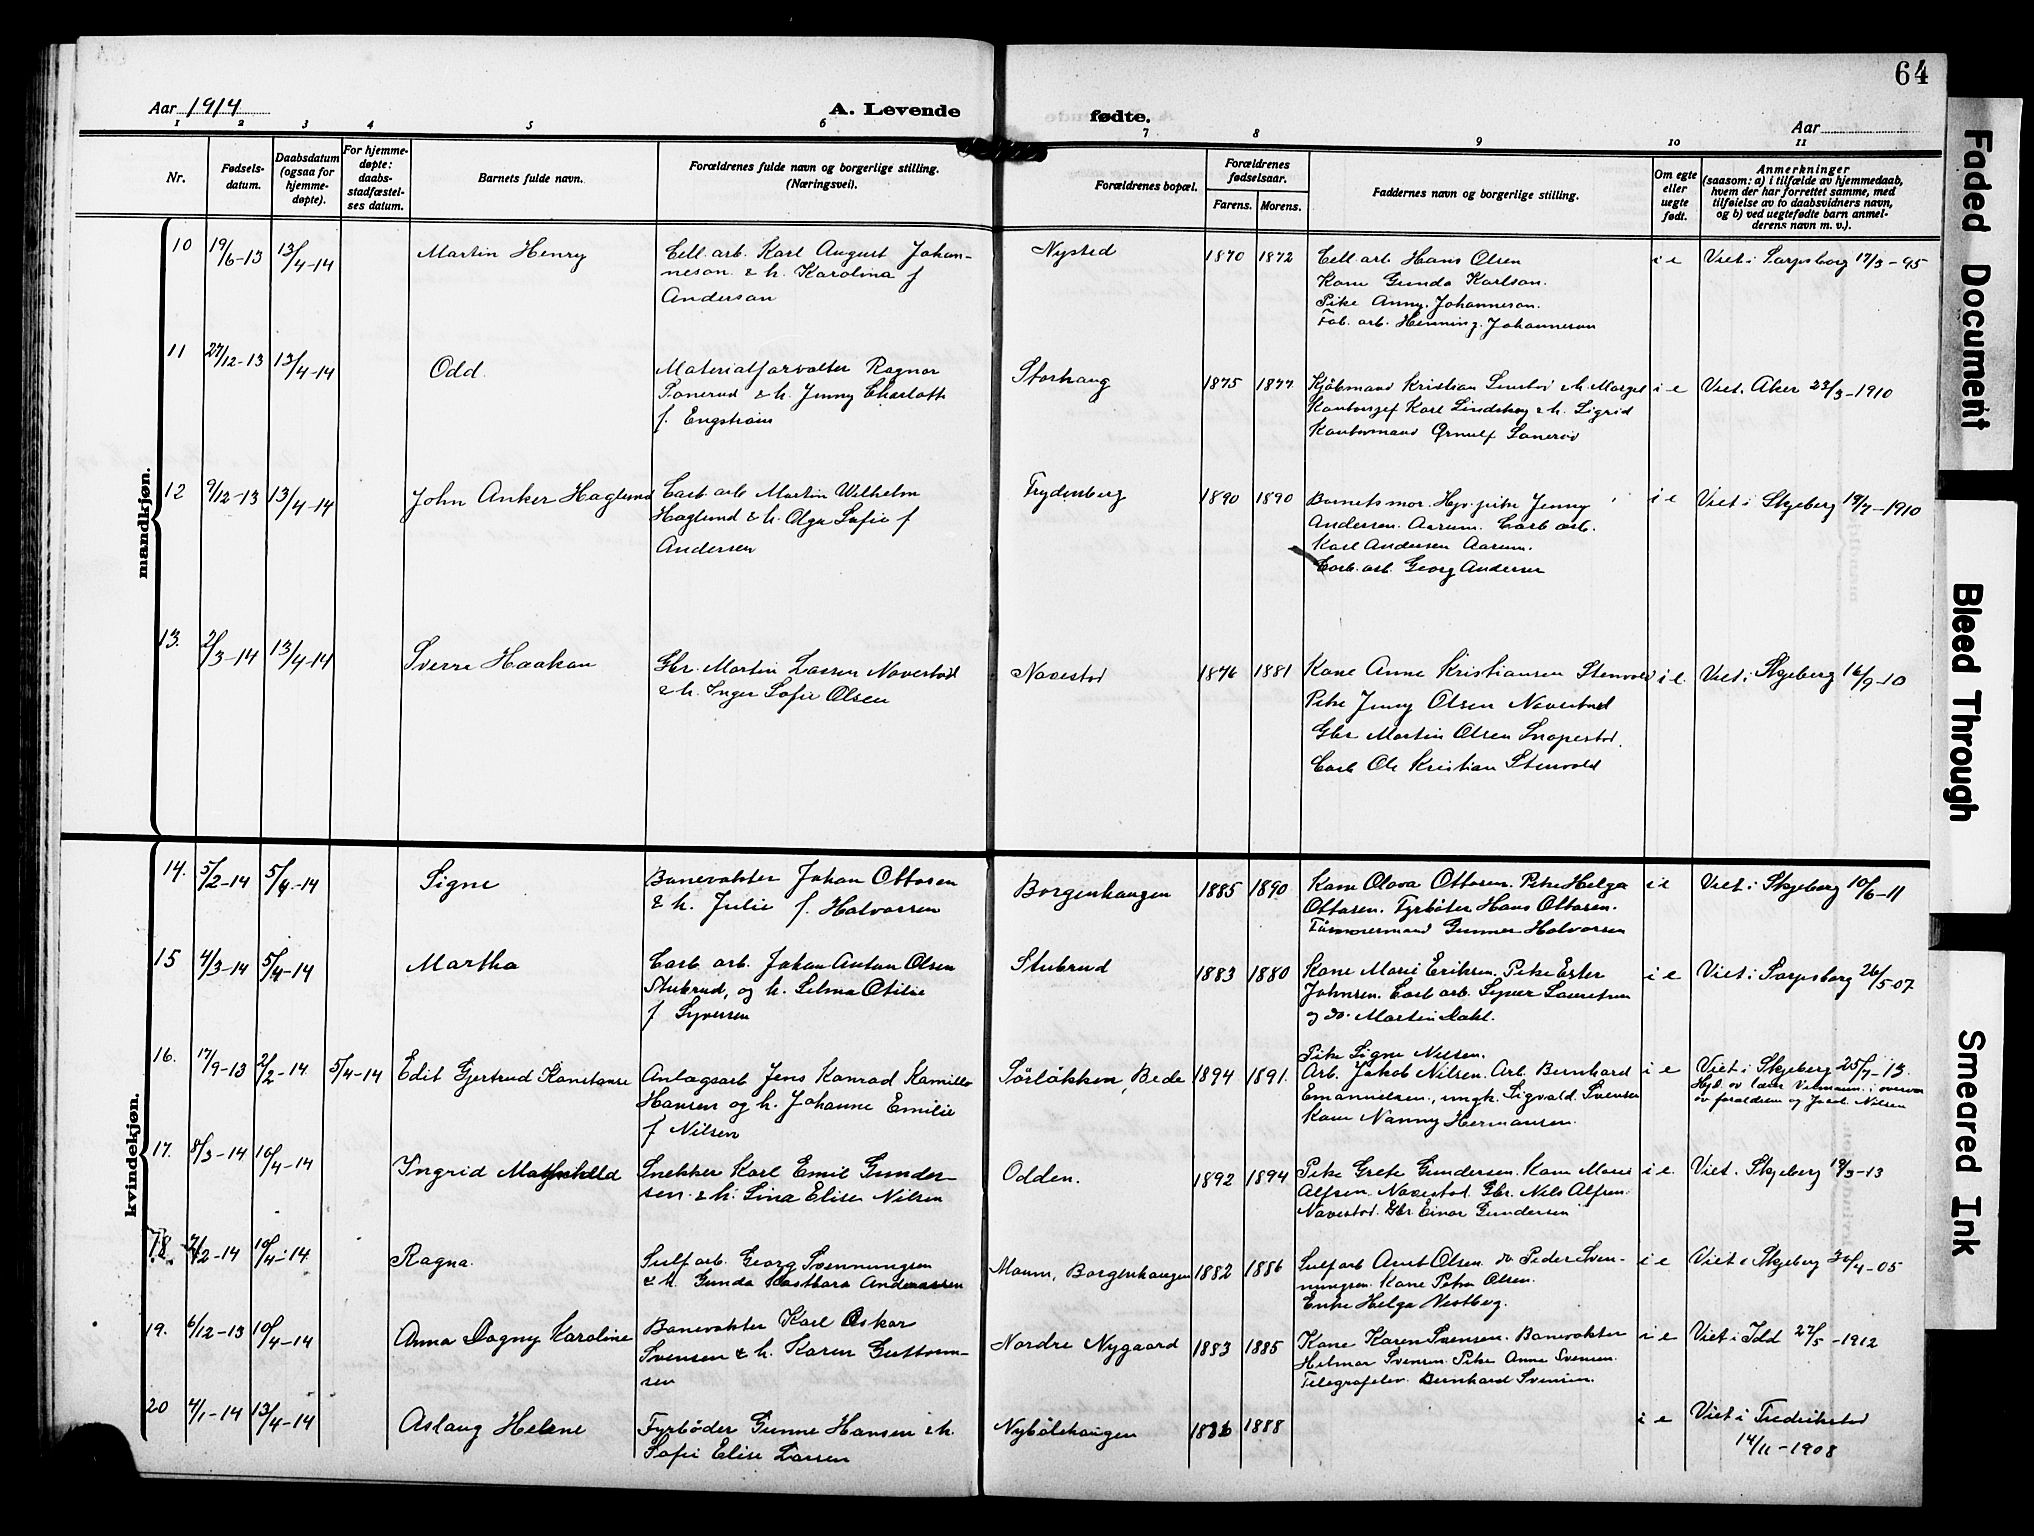 64
Aar 1914
A. Levende
fødte.
Aar
1 2 3 4 5 6 7 8 9 10 11
Nr.
Fødsels-
datum.
Daabsdatum
(ogsaa for
hjemme-
døpte).
For hjemme-
døpte:
daabs-
stadfæstel-
ses datum.
Barnets fulde navn.
Forældrenes fulde navn og borgerlige stilling.
(Næringsvei).
Forældrenes bopæl.
Forældrenes
fødselsaar.
Farens. Morens.
Faddernes navn og borgerlige stilling.
Om egte
eller
uegte
født.
Anmerkninger
(saasom: a) i tilfælde av hjemmedaab,
hvem der har forrettet samme, med
tilføielse av to daabsvidners navn,
og b) ved uegtefødte barn anmel-
derens navn m. v.).
mandkjøn.
10 19/6-13 13/4-14 Martin Henry
Cell. arb. Karl August Johan-
neson & h. Karolina f
Anderson
Nysted 1870 1872
Cell arb. Hans Olsen
Kone Gunda Karlson.
Pike Anny Johanneson.
Fab. arb. Henning Johanneson
i e Viet i Sarpsborg 17/3-95
11 27/12-13 13/4-14 Odd.
Materialforvalter Ragnar
Sonerud & h. Jenny Charlotte
f. Engstrøm
Storhaug 1875 1877
Kjøbmand Kristian h. Margit
Karl Lindskog & h. Sigrid
Ornulf
i e Viet i Aker 23/3-1910
12 9/12-13 13/4-14 John Anker Haglund
Carb arb Martin Wilhelm
Haglund & h. Olga Sofie f
Andersen
Frydenberg 1890 1890
Barnets mor. Hjv. pike Jenny
Andersen. Aarum. Carb arb.
Karl Andersen Aarum.
Carb. arb. Georg Andersen
i e Viet i Skjeberg 19/7-1910
13. 2/3-14 13/4-14 Sverre Haakon
Gbr. Martin Larsen Navestad
& h. Inger Sofie Olsen
Navestad 1876 1881
Kone Anne Kristiansen Stenvold
Pike Jenny Olsen Navestad
Gbr Martin Olsen
Carb Ole Kristian Stenvold
i e. Viet i Skjeberg 16/9-10
kvindekjøn.
14. 5/2-14 5/4-14 Signe
Banevakter Johan Ottosen
& h. Julie f. Halvorsen
Borgenhaugen 1885 1890
Kone Olava Ottosen. Pike Helga
Ottosen. Fyrbøter Hans Ottosen.
Tømmermand Gunnar Halvorsen
i e Viet i Skjeberg 10/6-11
15 4/3-14 5/4-14 Martha
Carb. arb. Johan Anton Olsen
Stubrud, og h. Selma Otilie
f Syversen
Stubrud 1883 1880
Kone Marie Eriksen. Pike Ester
Johnsen. Carb arb. Syver Lauritsen
og do. Martin Dahl.
i e Viet i Sarpsborg 26/5-07.
16. 17/9-13 2/2-14 5/4-14 Edit Gjertrud Konstanse
Anlægsarb Jens Konrad Kamillo
Hansen og h. Johanne Emilie
f Nilsen
Sørløkken, Bede 1894 1891.
Pike Signe Nilsen.
Arb. Jakob Nilsen. Arb. Bernhard
Emanuelsen, ungk. Sigvald Svensen
Kone Nanny Hermansen.
i e Viet i Skjeberg 25/7-13.
Hjd. av lærer i overvær
av forældrene og Jacob Nilsen
17. 8/3-14 10/4-14 Ingrid Mathilde
Snekker Karl Emil Gunder-
sen & h. Lina Elise Nilsen
Odden. 1892 1894
Pike Grete Gundersen. Kone Marie
Alfsen. Navestad. Gbr. Nils Alfsen.
Navestad. Gbr Einar Gundersen
i e. Viet i Skjeberg 19/3-13
18. 7/2-14 10/4-14 Ragna.
Sulf arb. Georg Svenningsen
& h. Gunda Andreassen
Moum, Borgenhaugen 1882 1886
Sulf arb Olsen do Peder Sven-
ningsen. Kone Petra Olsen.
Enke Helga Vestberg.
i e Viet i Skjeberg 30/4-05
19. 6/12-13 10/4-14 Anna Dagny Karoline
Banevakter Karl Oskar
Svensen & h. Karen Guttorm-
sen
Nordre Nygaard 1883 1885
Kone Karen Svensen. Banevakter
Helmar Svensen. Pike Anne Svensen.
Telegrafelev. Bernhard Svensen.
i e Viet i Idd 27/5-1912
20 4/1-14 13/4-14 Aslaug Helene
Fyrbøder Gunne Hansen & h.
Sofie Elise Larsen
Nybølehaugen 1886 1888
i e Viet i Fredrikstad
14/11-1908
Faded Document
Bleed Through
Smeared Ink